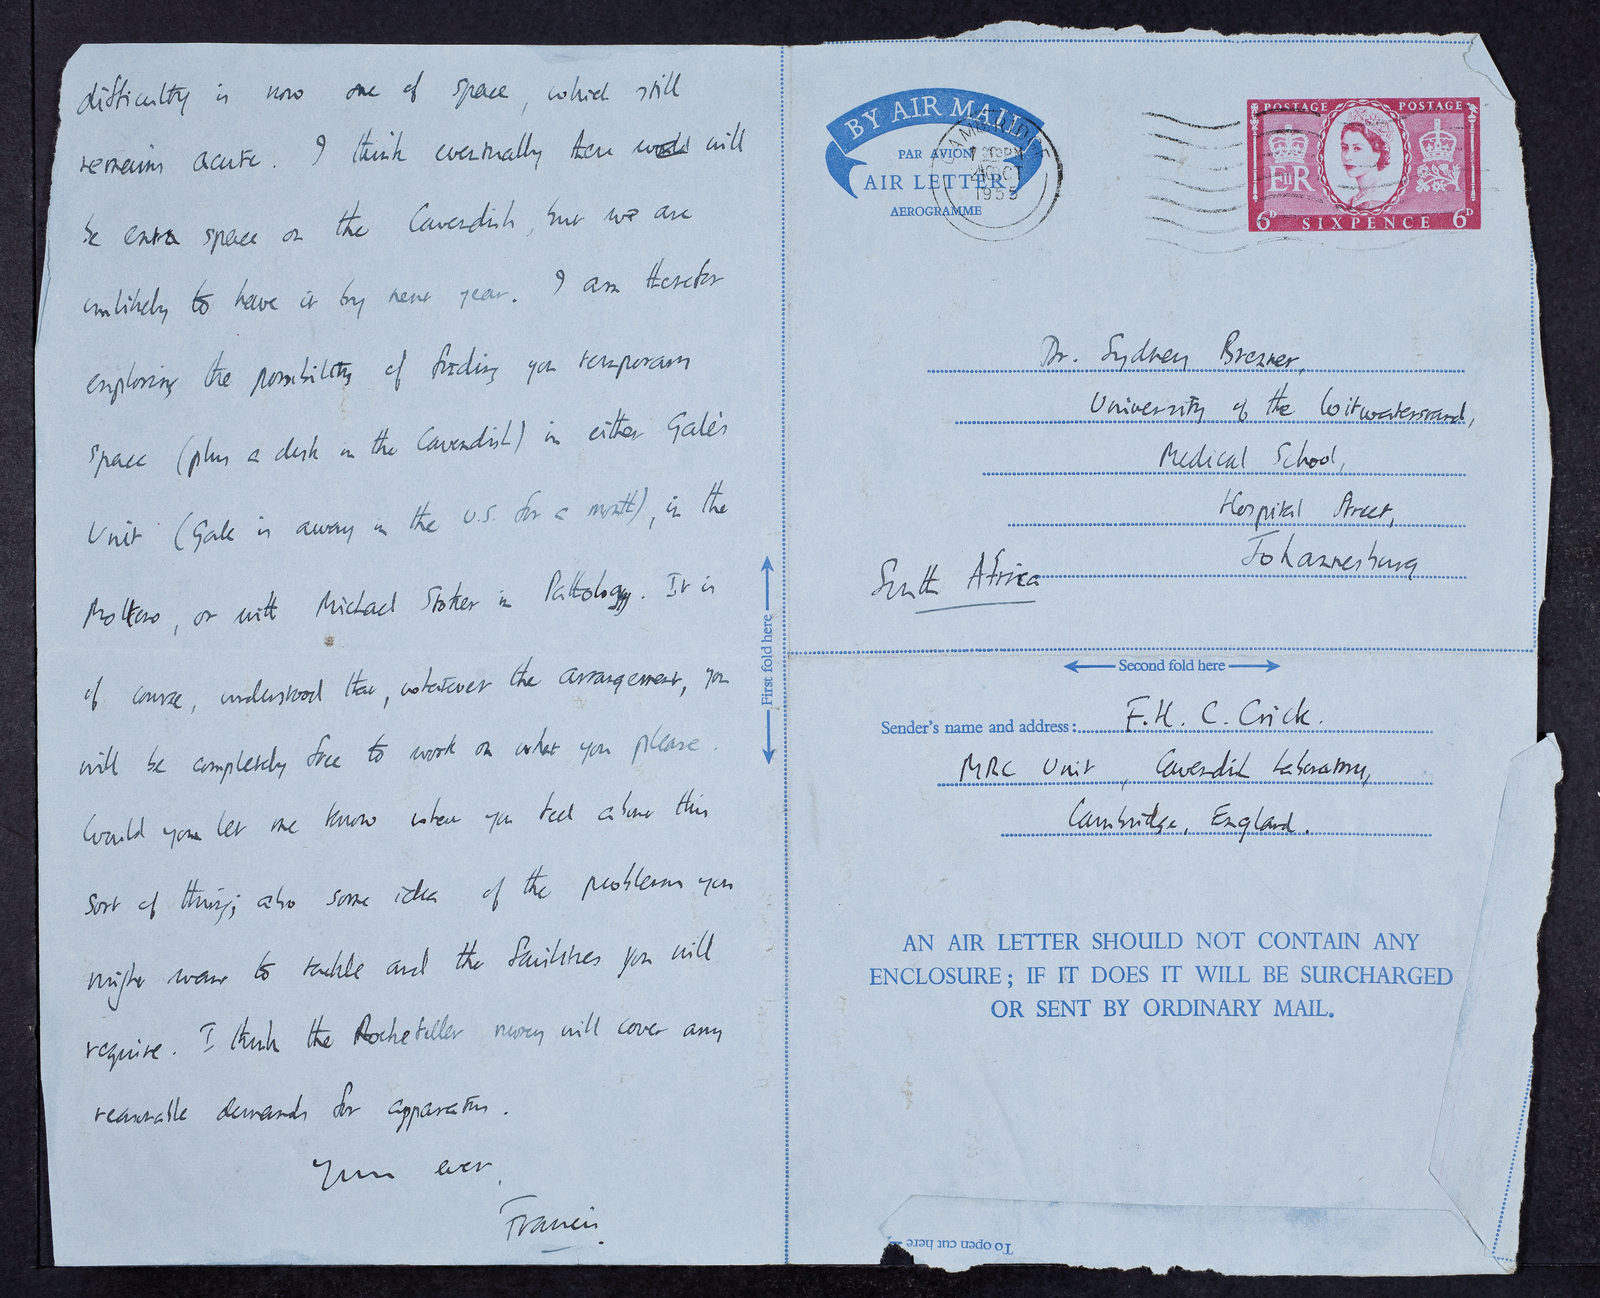 difficulty is now one of space, which still
remains acute. I think eventually there would will
be extra space in the Cavendish, but we are
unlikely to have it by next year. I am therefor
exploring the possibility of finding you temporary
space (plus a desk in the Cavendish) in either Gale's
Unit (Gale is away in the U.S. for a month), in the
Molteno, or with Michael Stoker in Pathology. It is
of course, understood that, whatever the arrangement, you
will be completely free to work on what you please.
Would you let me know what you feel about this
sort of thing; also some idea of the problems you
might want to tackle and the facilities you will
require. I think the Rockefeller money will cover any
reasonable demands for apparatus.
Yours ever,
Francis.
First fold here
BY AIR MAIL
PAR AVION
AIR LETTER
AEROGRAMME
CAMBRIDGE
OCT
1955
POSTAGE POSTAGE
E II R
6D SIXPENCE 6D
Dr. Sydney Brenner,
University of the Witwatersrand,
Medical School,
Hospital Street,
Johannesburg
South Africa
Second fold here
Sender's name and address: F.H.C. Crick.
MRC Unit, Cavendish Laboratory,
Cambridge, England.
AN AIR LETTER SHOULD NOT CONTAIN ANY
ENCLOSURE; IF IT DOES IT WILL BE SURCHARGED
OR SENT BY ORDINARY MAIL.
To open cut here